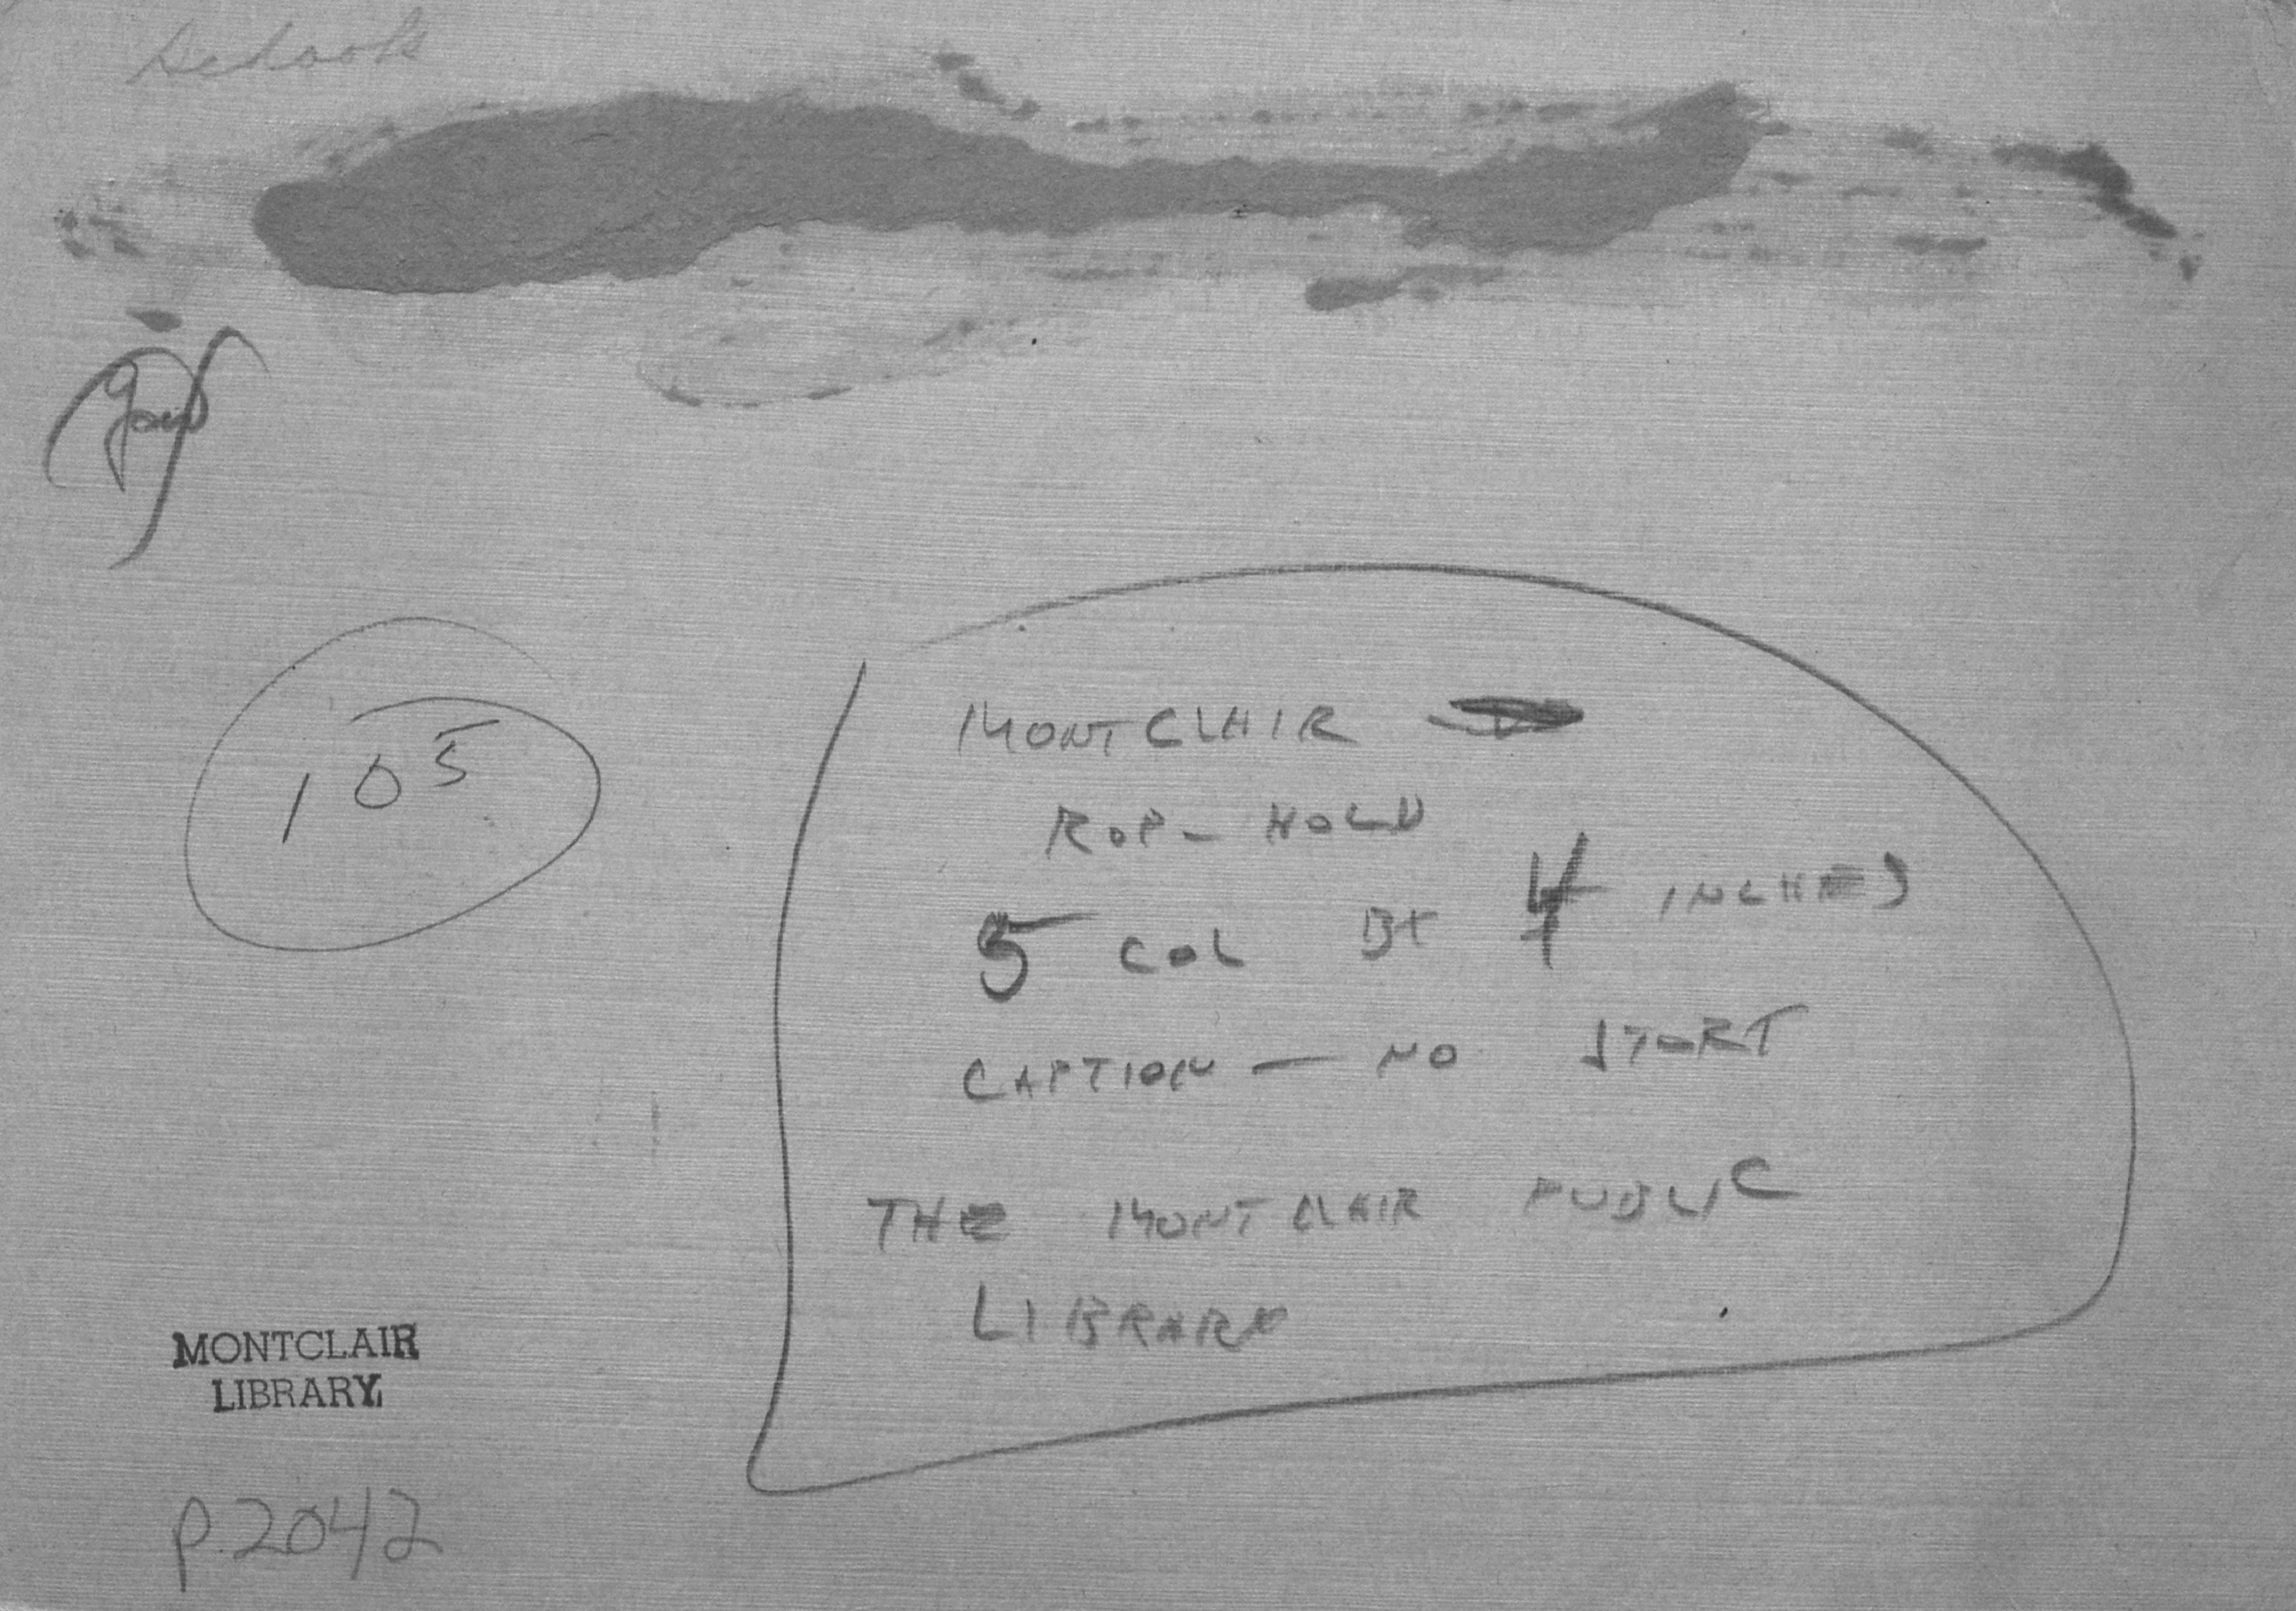 Schools
105
MONTCLAIR
ROP - HOLD
5 COL BY 4 INCHES
CAPTION — NO START
THE MONTCLAIR PUBLIC
LIBRARY
MONTCLAIR
LIBRARY
P. 2042